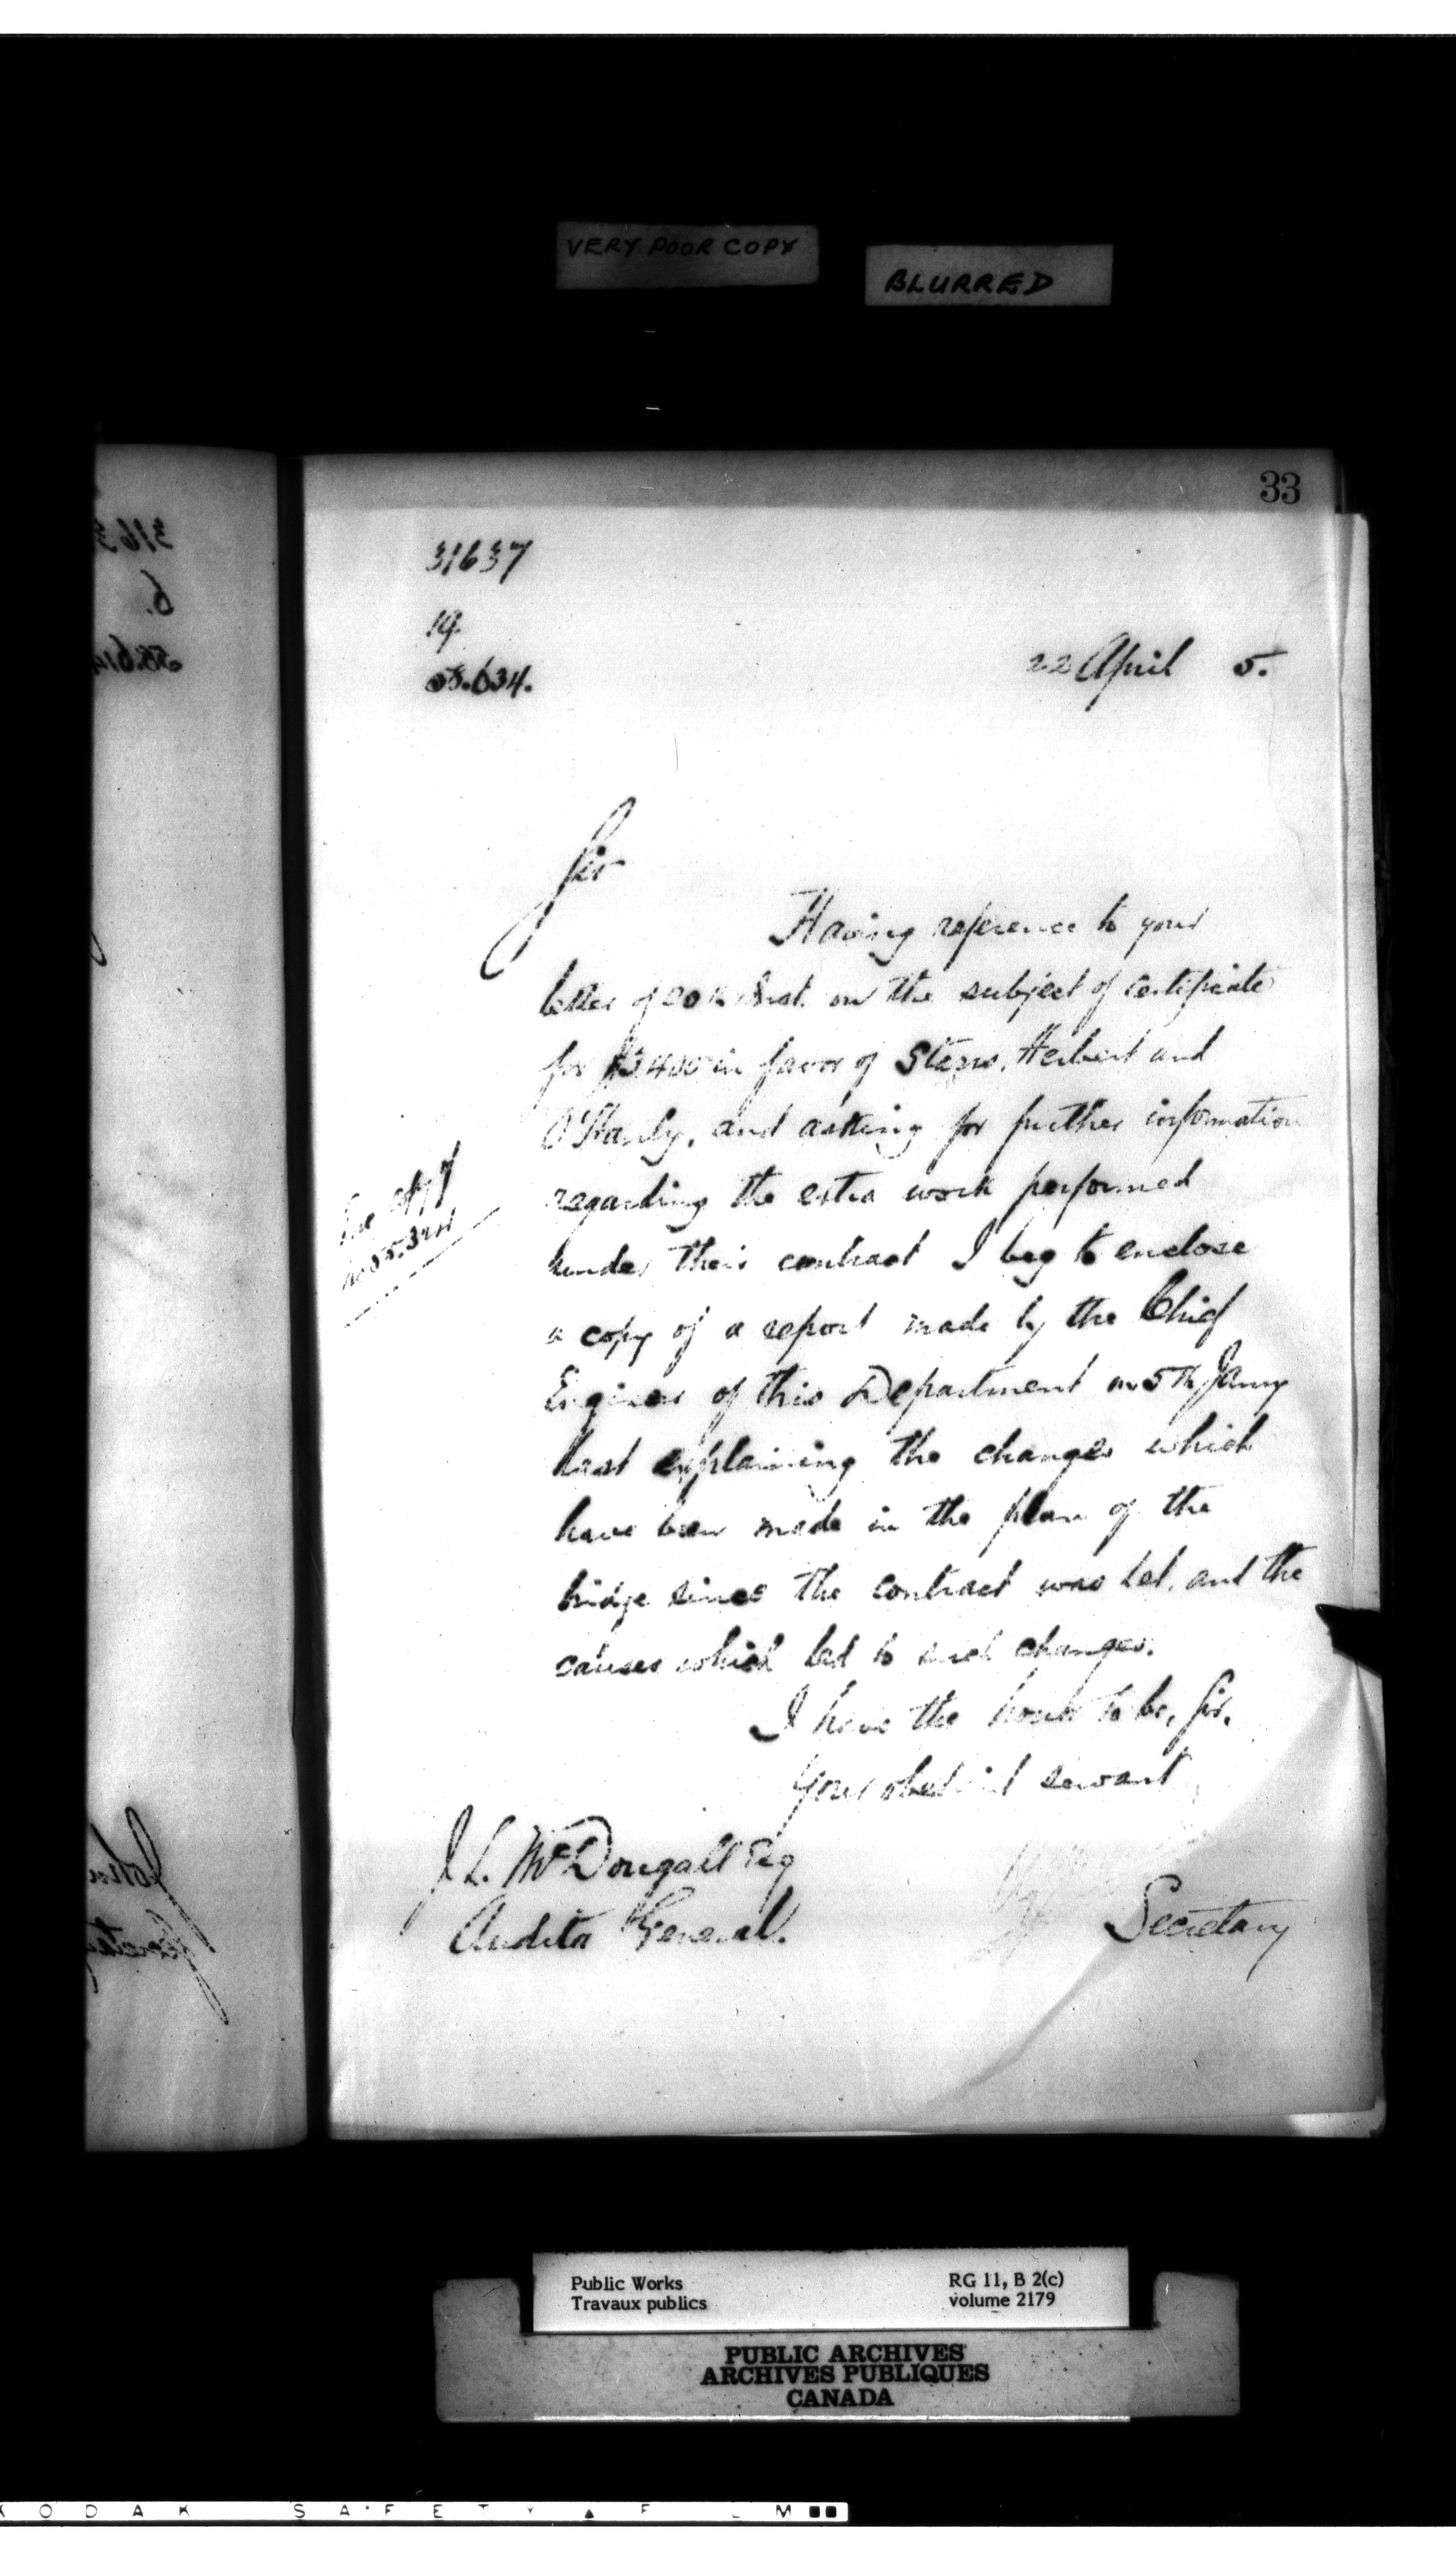 VERY POOR COPY
BLURRED
33
31637
19.
58.634.
22 April 5.
Sir
Having reference to your
letter of 20th Inst. on the subject of certificate
for in favor of Herbert and
O'Hanly, and asking for further information
regarding the extra work performed
under their contract I beg to enclose
a copy of a report made by the Chief
Engineer of this Department on 5th Jany
last explaining the changes which
have been made in the plan of the
bridge since the contract was let, and the
causes which led to such changes.
I have the honor to be, Sir,
Your obedient servant
J L. McDougall Esq
Auditor General.
Secretary
Public Works
Travaux publics
RG 11, B 2(c)
volume 2179
PUBLIC ARCHIVES
ARCHIVES PUBLIQUES
CANADA
KODAK SAFETY